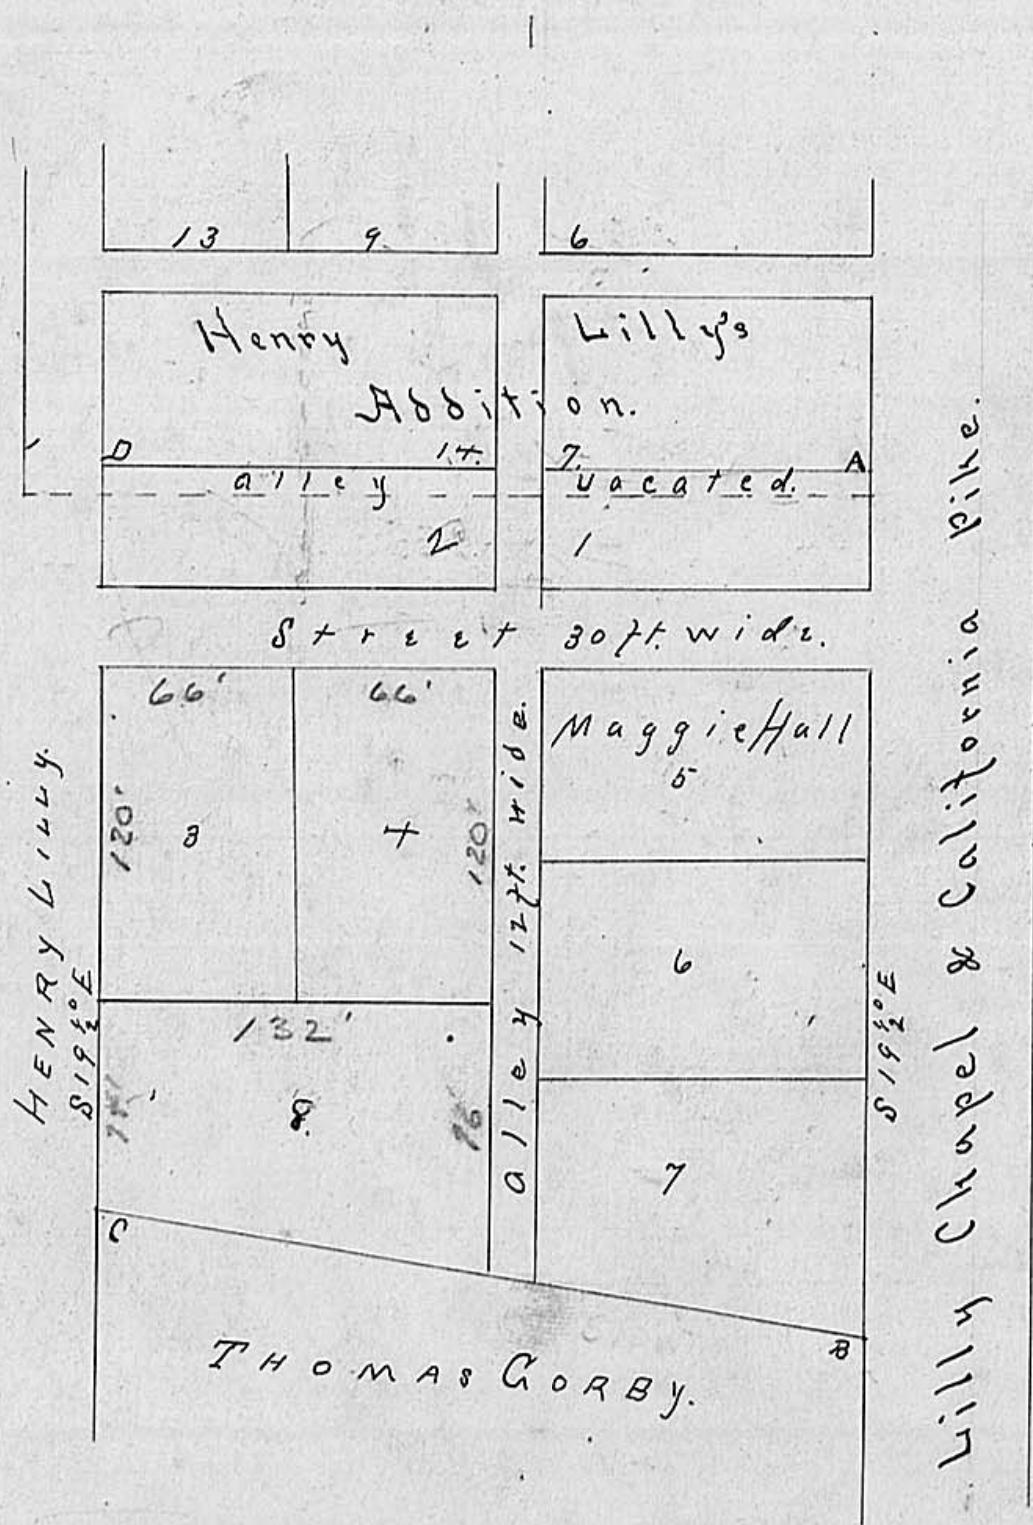 13 9 6
Henry Lilly's
Addition.
D 14. 7. A
alley vacated.
2 1
Street 30 ft. wide.
66' 66'
Maggie Hall
5
120' 3 4 120'
alley 12 ft. wide.
6
132'
8.
7
C
B
THOMAS GORBY.
HENRY LILLY.
S 19 1/2° E
S 19 1/2° E
Lilly Chapel & California pike.